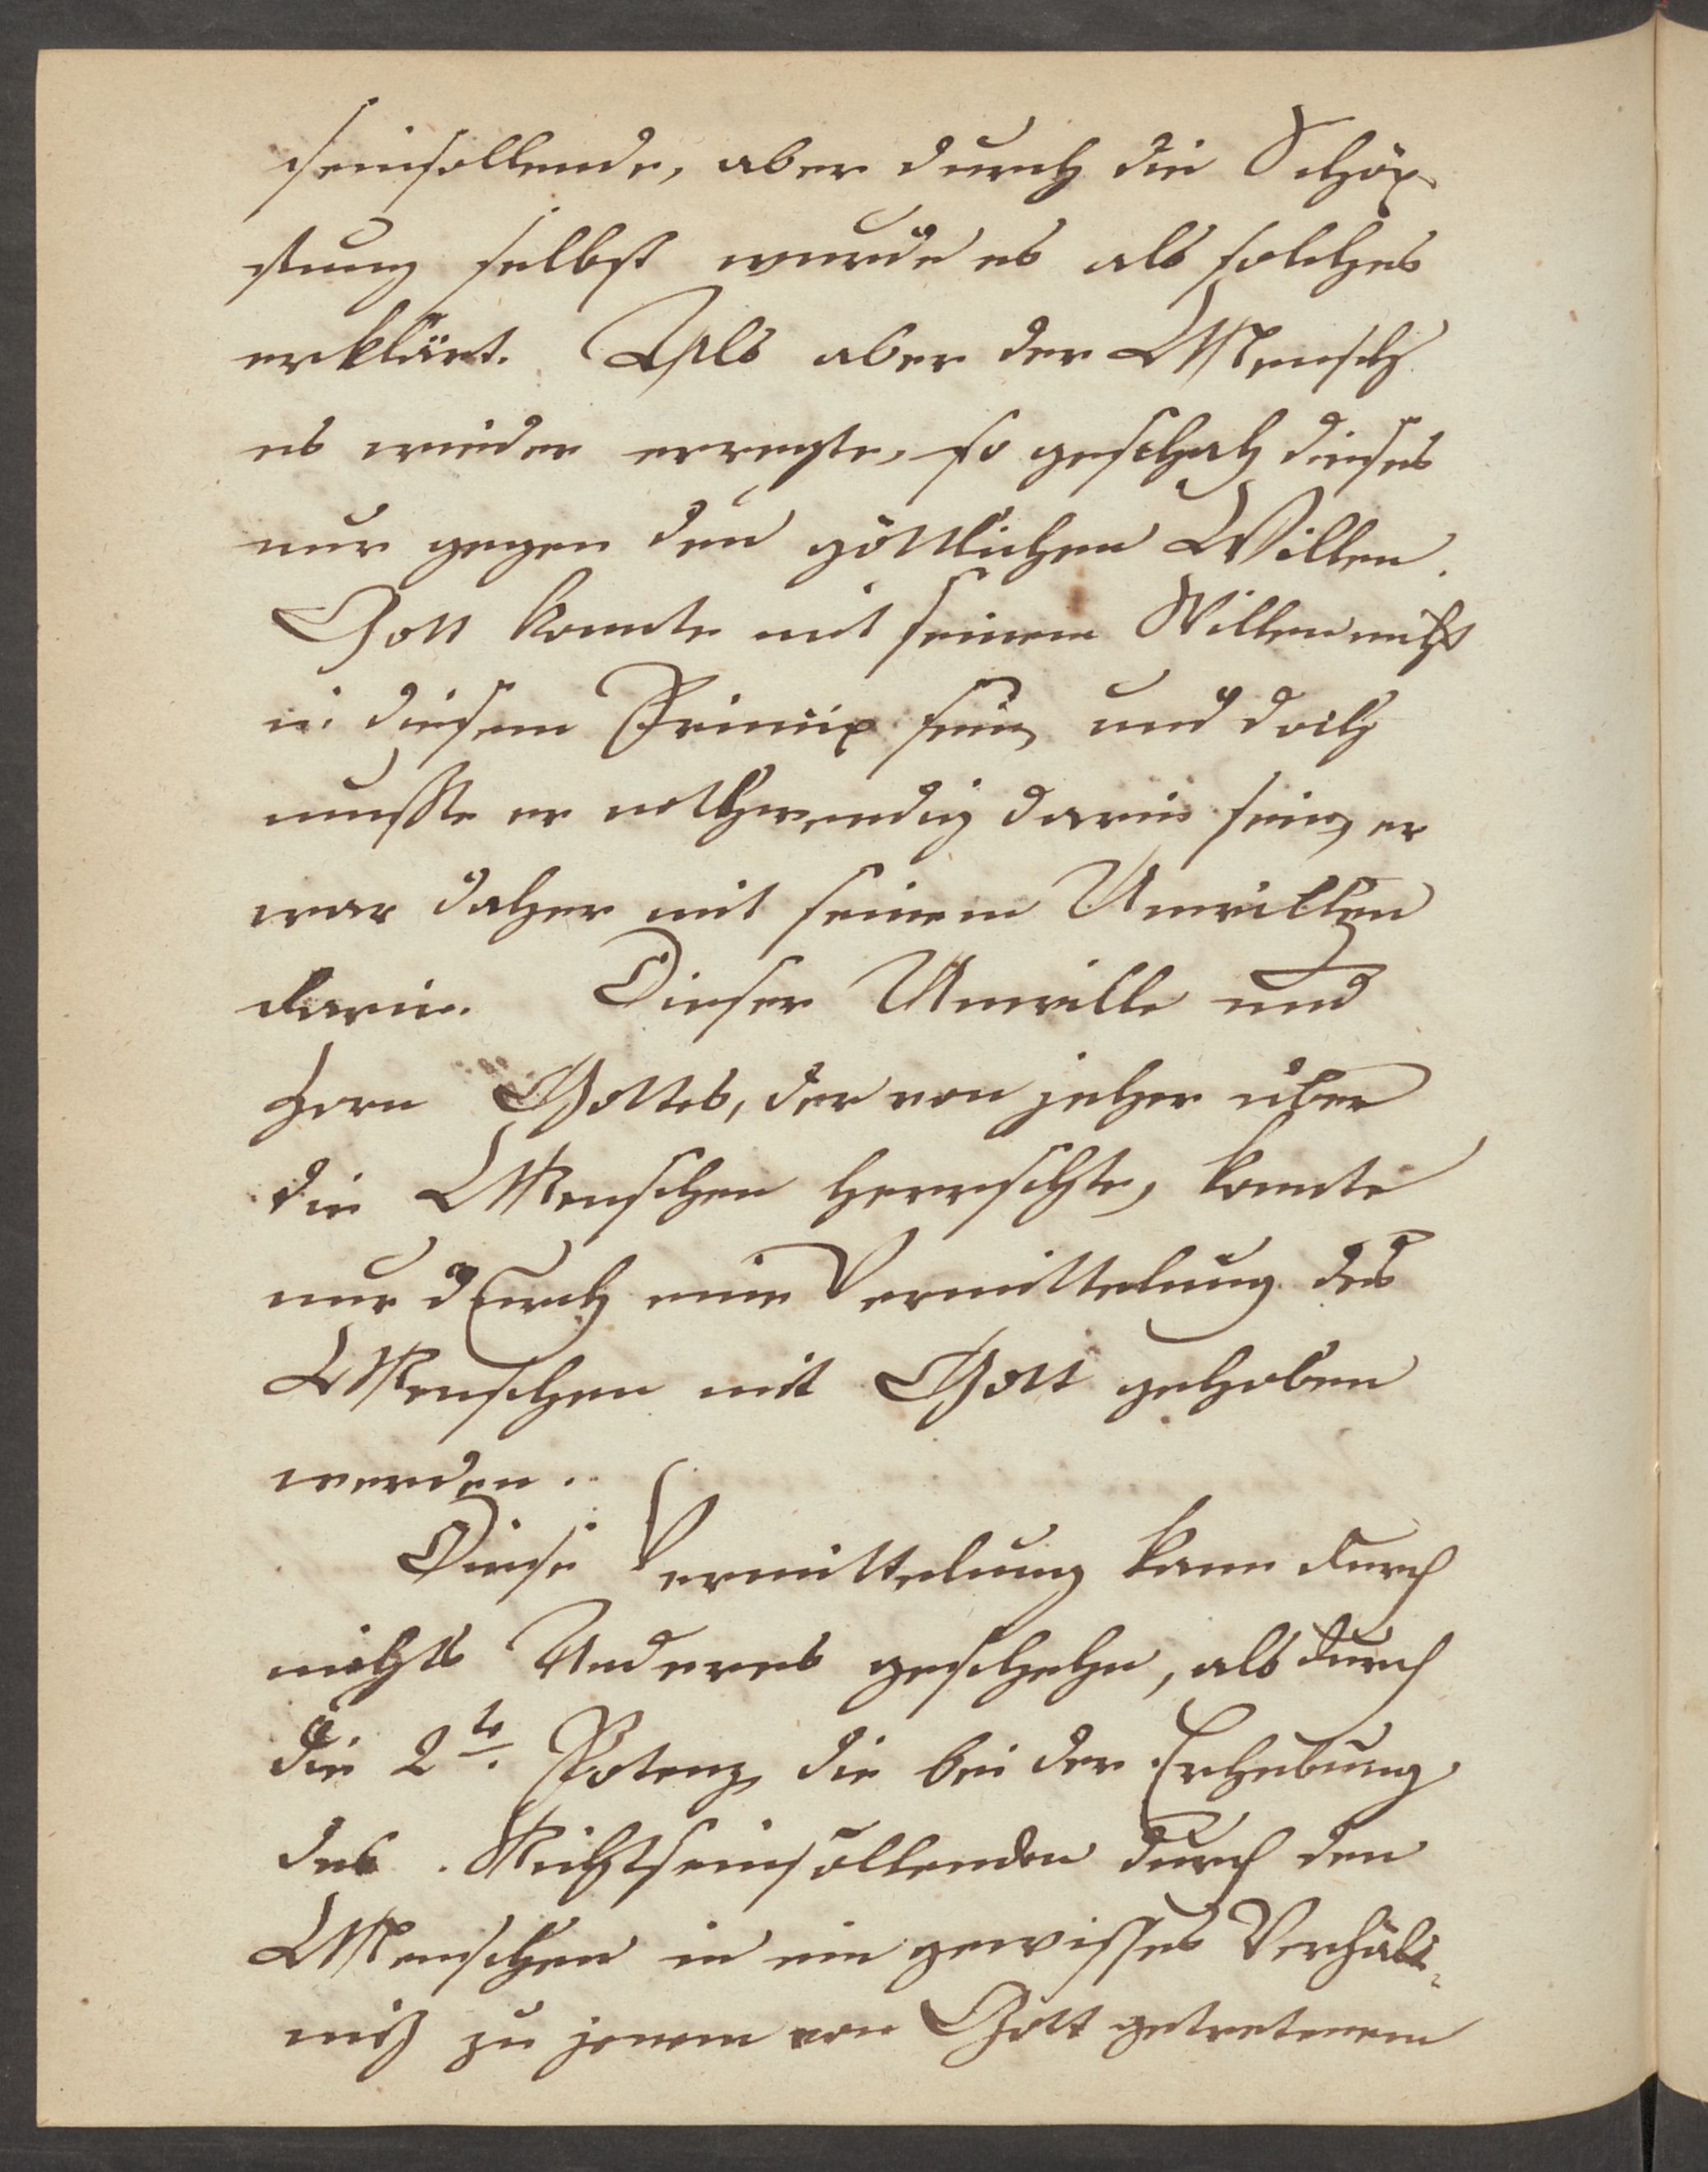 seinsollende, aber durch die Schöp-
fung selbst wurde es als solches
erklärt. Als aber der Mensch
es wieder erregte, so geschah dieses
nur gegen den göttlichen Willen.
Gott konnte mit seinem Willen nicht
in diesem Princip sein, und doch
mußte er nothwendig darin sein, er
war daher mit seinem Unwillen
darin. Dieser Unwille und
Zorn Gottes, der von jeher über
die Menschen herrschte, konnte
nur durch eine Vermittelung des
Menschen mit Gott gehoben
werden.
Diese Vermittelung kann durch
nichts Anderes geschehn, als durch
die 2te. Potenz, die bei der Erhebung
des Nichtseinsollenden durch den
Menschen in ein gewisses Verhält-
niß zu jenem von Gott getretenem